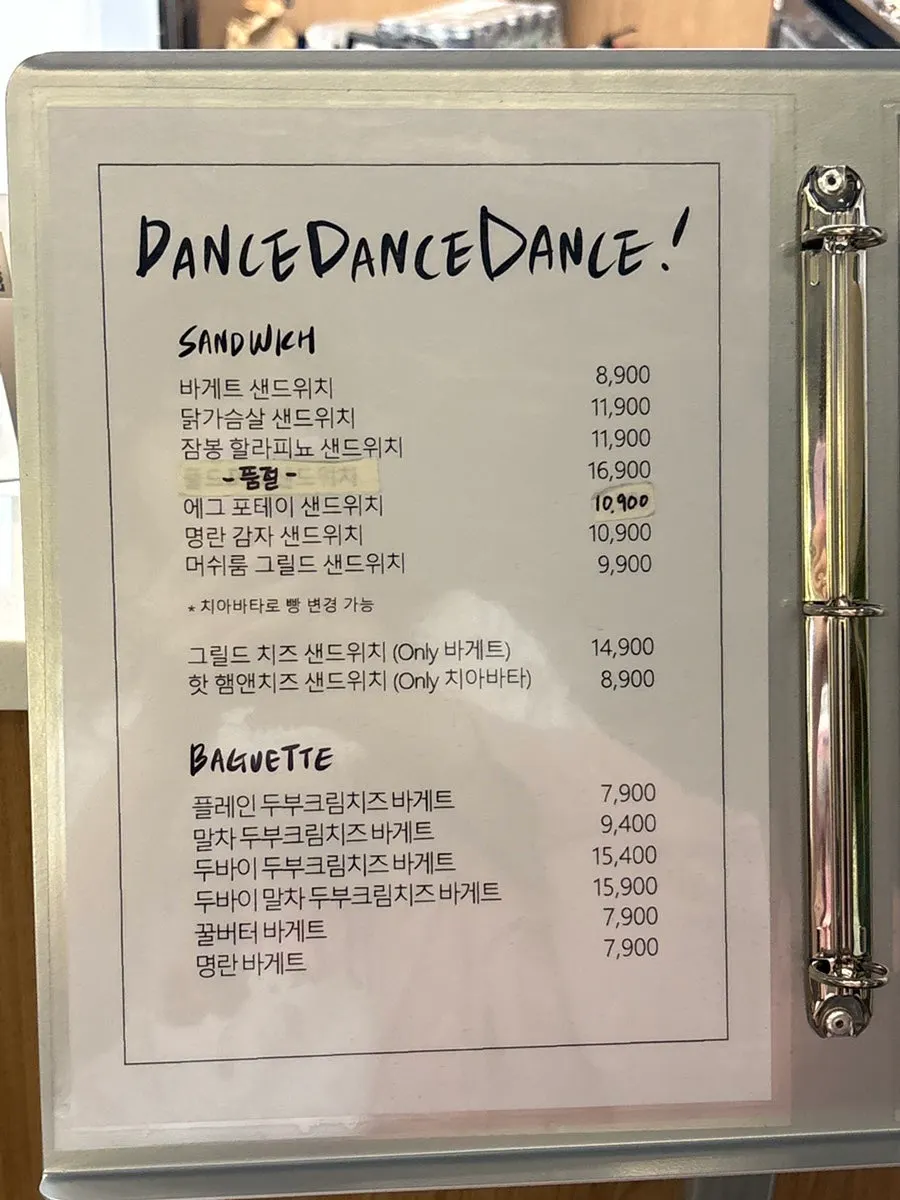 DANCEDANCEDANCE!
SANDWICH
바게트 샌드위치 8,900
닭가슴살 샌드위치 11,900
잠봉 할라피뇨 샌드위치 11,900
-품절- 16,900
에그 포테이 샌드위치 10,900
명란 감자 샌드위치 10,900
머쉬룸 그릴드 샌드위치 9,900
* 치아바타로 빵 변경 가능
그릴드 치즈 샌드위치 (Only 바게트) 14,900
핫 햄앤치즈 샌드위치 (Only 치아바타) 8,900
BAGUETTE
플레인 두부크림치즈 바게트 7,900
말차 두부크림치즈 바게트 9,400
두바이 두부크림치즈 바게트 15,400
두바이 말차 두부크림치즈 바게트 15,900
꿀버터 바게트 7,900
명란 바게트 7,900